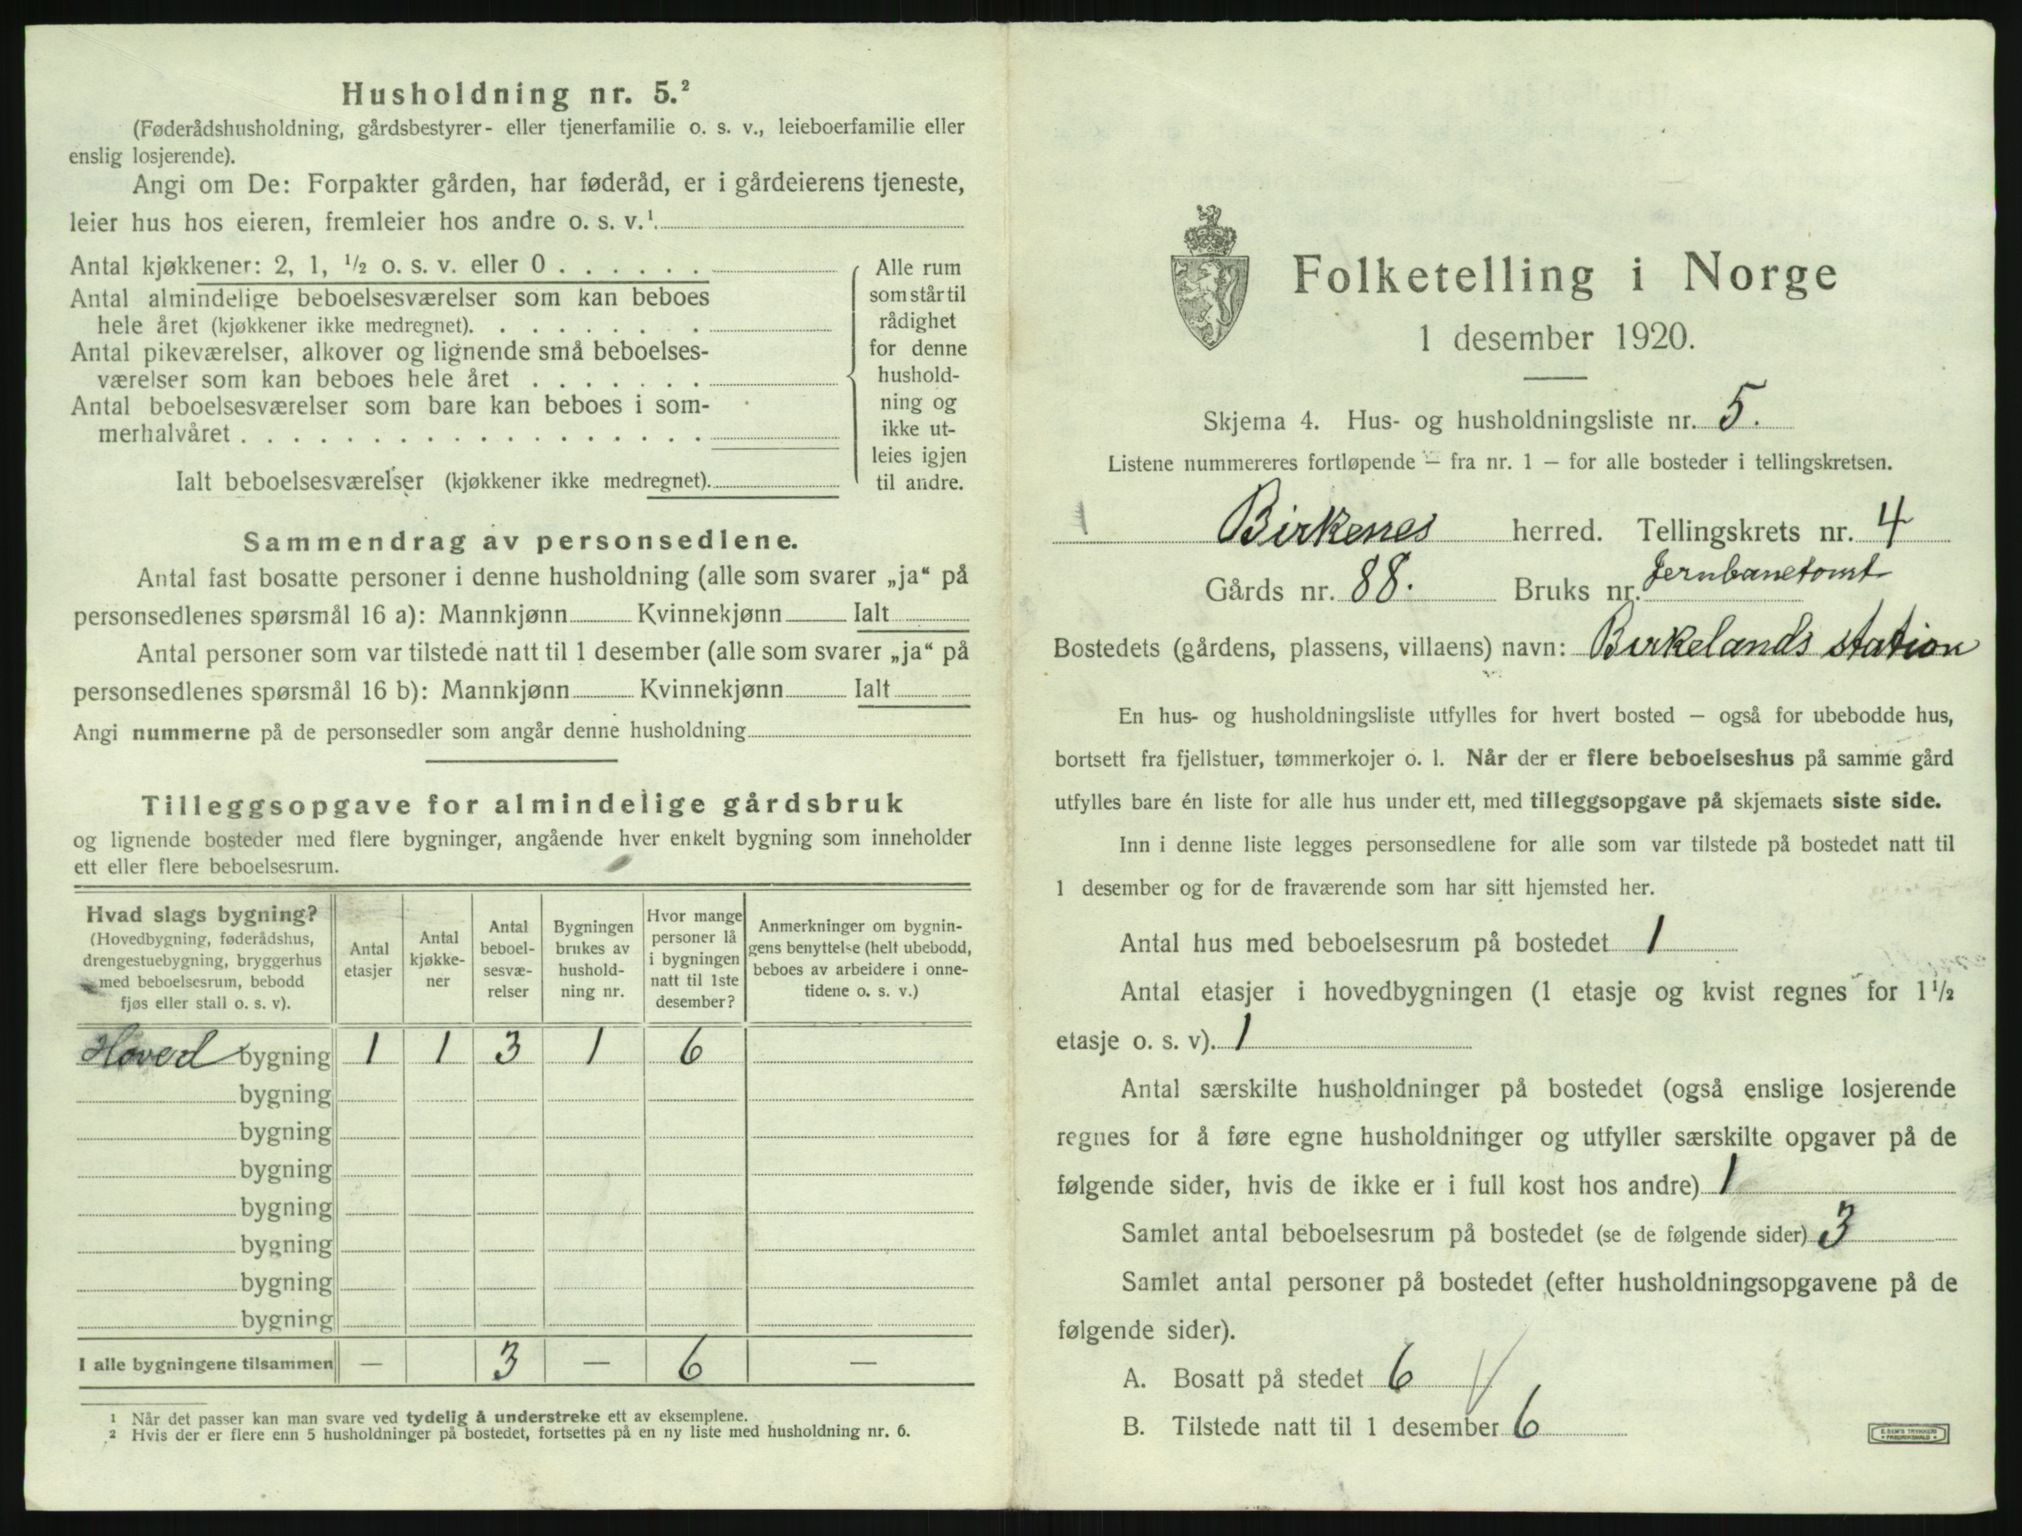 Husholdning nr. 5.²
(Føderådshusholdning, gårdsbestyrer- eller tjenerfamilie o. s. v., leieboerfamilie eller
enslig losjerende).
Angi om De: Forpakter gården, har føderåd, er i gårdeierens tjeneste,
leier hus hos eieren, fremleier hos andre o. s. v.¹
Antal kjøkkener: 2, 1, ½ o. s. v. eller 0 . . . . . .
Antal almindelige beboelsesværelser som kan beboes
hele året (kjøkkener ikke medregnet). . . . . . . . .
Antal pikeværelser, alkover og lignende små beboelses-
værelser som kan beboes hele året . . . . . . .
Antal beboelsesværelser som bare kan beboes i som-
merhalvåret . . . . . . . . . . . . . . . . . .
Ialt beboelsesværelser (kjøkkener ikke medregnet).
Alle rum
som står til
rådighet
for denne
hushold-
ning og
ikke ut-
leies igjen
til andre.
Sammendrag av personsedlene.
Antal fast bosatte personer i denne husholdning (alle som svarer „ja“ på
personsedlenes spørsmål 16 a): Mannkjønn Kvinnekjønn Ialt
Antal personer som var tilstede natt til 1 desember (alle som svarer „ja“ på
personsedlenes spørsmål 16 b): Mannkjønn Kvinnekjønn Ialt
Angi nummerne på de personsedler som angår denne husholdning
Tilleggsopgave for almindelige gårdsbruk
og lignende bosteder med flere bygninger, angående hver enkelt bygning som inneholder
ett eller flere beboelsesrum.
Hvad slags bygning?
(Hovedbygning, føderådshus,
drengestuebygning, bryggerhus
med beboelsesrum, bebodd
fjøs eller stall o. s. v).
Antal
etasjer
Antal
kjøkke-
ner
Antal
beboel-
sesvæ-
relser
Bygningen
brukes av
hushold-
ning nr.
Hvor mange
personer lå
i bygningen
natt til 1ste
desember?
Anmerkninger om bygnin-
gens benyttelse (helt ubebodd,
beboes av arbeidere i onne-
tidene o. s. v.)
Hoved bygning 1 1 3 1 6
bygning
bygning
bygning
bygning
bygning
bygning
bygning
I alle bygningene tilsammen — 3 — 6 —
¹ Når det passer kan man svare ved tydelig å understreke ett av eksemplene.
² Hvis der er flere enn 5 husholdninger på bostedet, fortsettes på en ny liste med husholdning nr. 6.
Folketelling i Norge
1 desember 1920.
Skjema 4. Hus- og husholdningsliste nr. 5.
Listene nummereres fortløpende — fra nr. 1 — for alle bosteder i tellingskretsen.
Birkenes herred. Tellingskrets nr. 4
Gårds nr. 88. Bruks nr. Jernbanetomt
Bostedets (gårdens, plassens, villaens) navn: Birkelands station
En hus- og husholdningsliste utfylles for hvert bosted — også for ubebodde hus,
bortsett fra fjellstuer, tømmerkojer o. l. Når der er flere beboelseshus på samme gård
utfylles bare én liste for alle hus under ett, med tilleggsopgave på skjemaets siste side.
Inn i denne liste legges personsedlene for alle som var tilstede på bostedet natt til
1 desember og for de fraværende som har sitt hjemsted her.
Antal hus med beboelsesrum på bostedet 1
Antal etasjer i hovedbygningen (1 etasje og kvist regnes for 1½
etasje o. s. v). 1
Antal særskilte husholdninger på bostedet (også enslige losjerende
regnes for å føre egne husholdninger og utfyller særskilte opgaver på de
følgende sider, hvis de ikke er i full kost hos andre) 1
Samlet antal beboelsesrum på bostedet (se de følgende sider) 3
Samlet antal personer på bostedet (efter husholdningsopgavene på de
følgende sider).
A. Bosatt på stedet 6
B. Tilstede natt til 1 desember 6